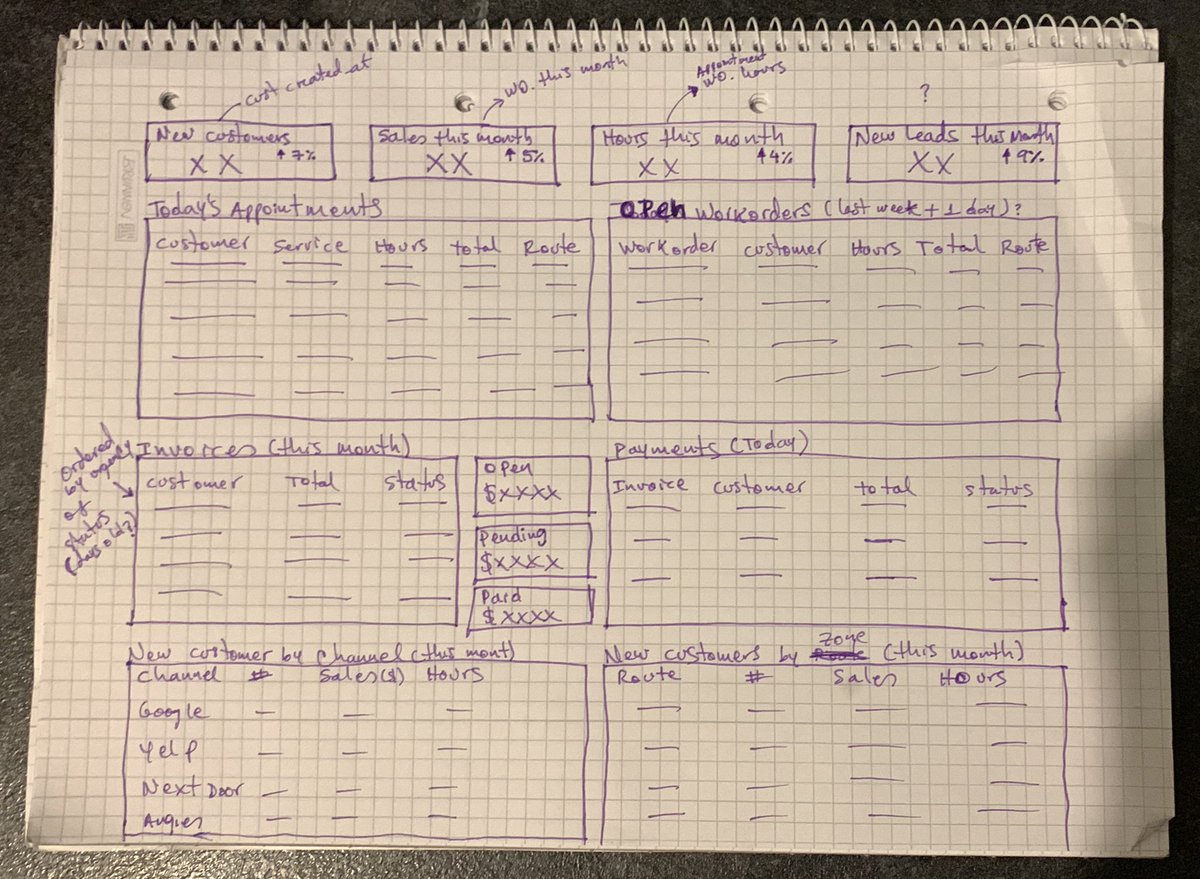 cust created_at
WO. this month
Appointment
WO. hours
?
New customers
XX ↑7%
Sales this month
XX ↑5%
Hours this month
XX ↑4%
New Leads this Month
XX ↑9%
Today's Appointments
customer Service Hours total Route
OPen Workorders (last week + 1 day)?
Workorder customer Hours Total Route
ordered
by urgency
of
status
(days old?)
Invoices (this month)
customer Total Status
Open
$XXXX
Pending
$XXXX
Paid
$XXXX
Payments (Today)
Invoice customer total status
New customer by Channel (this mont)
Channel # Sales($) Hours
Google
Yelp
Next Door
Angies
New customers by Zone (this month)
Route # Sales Hours